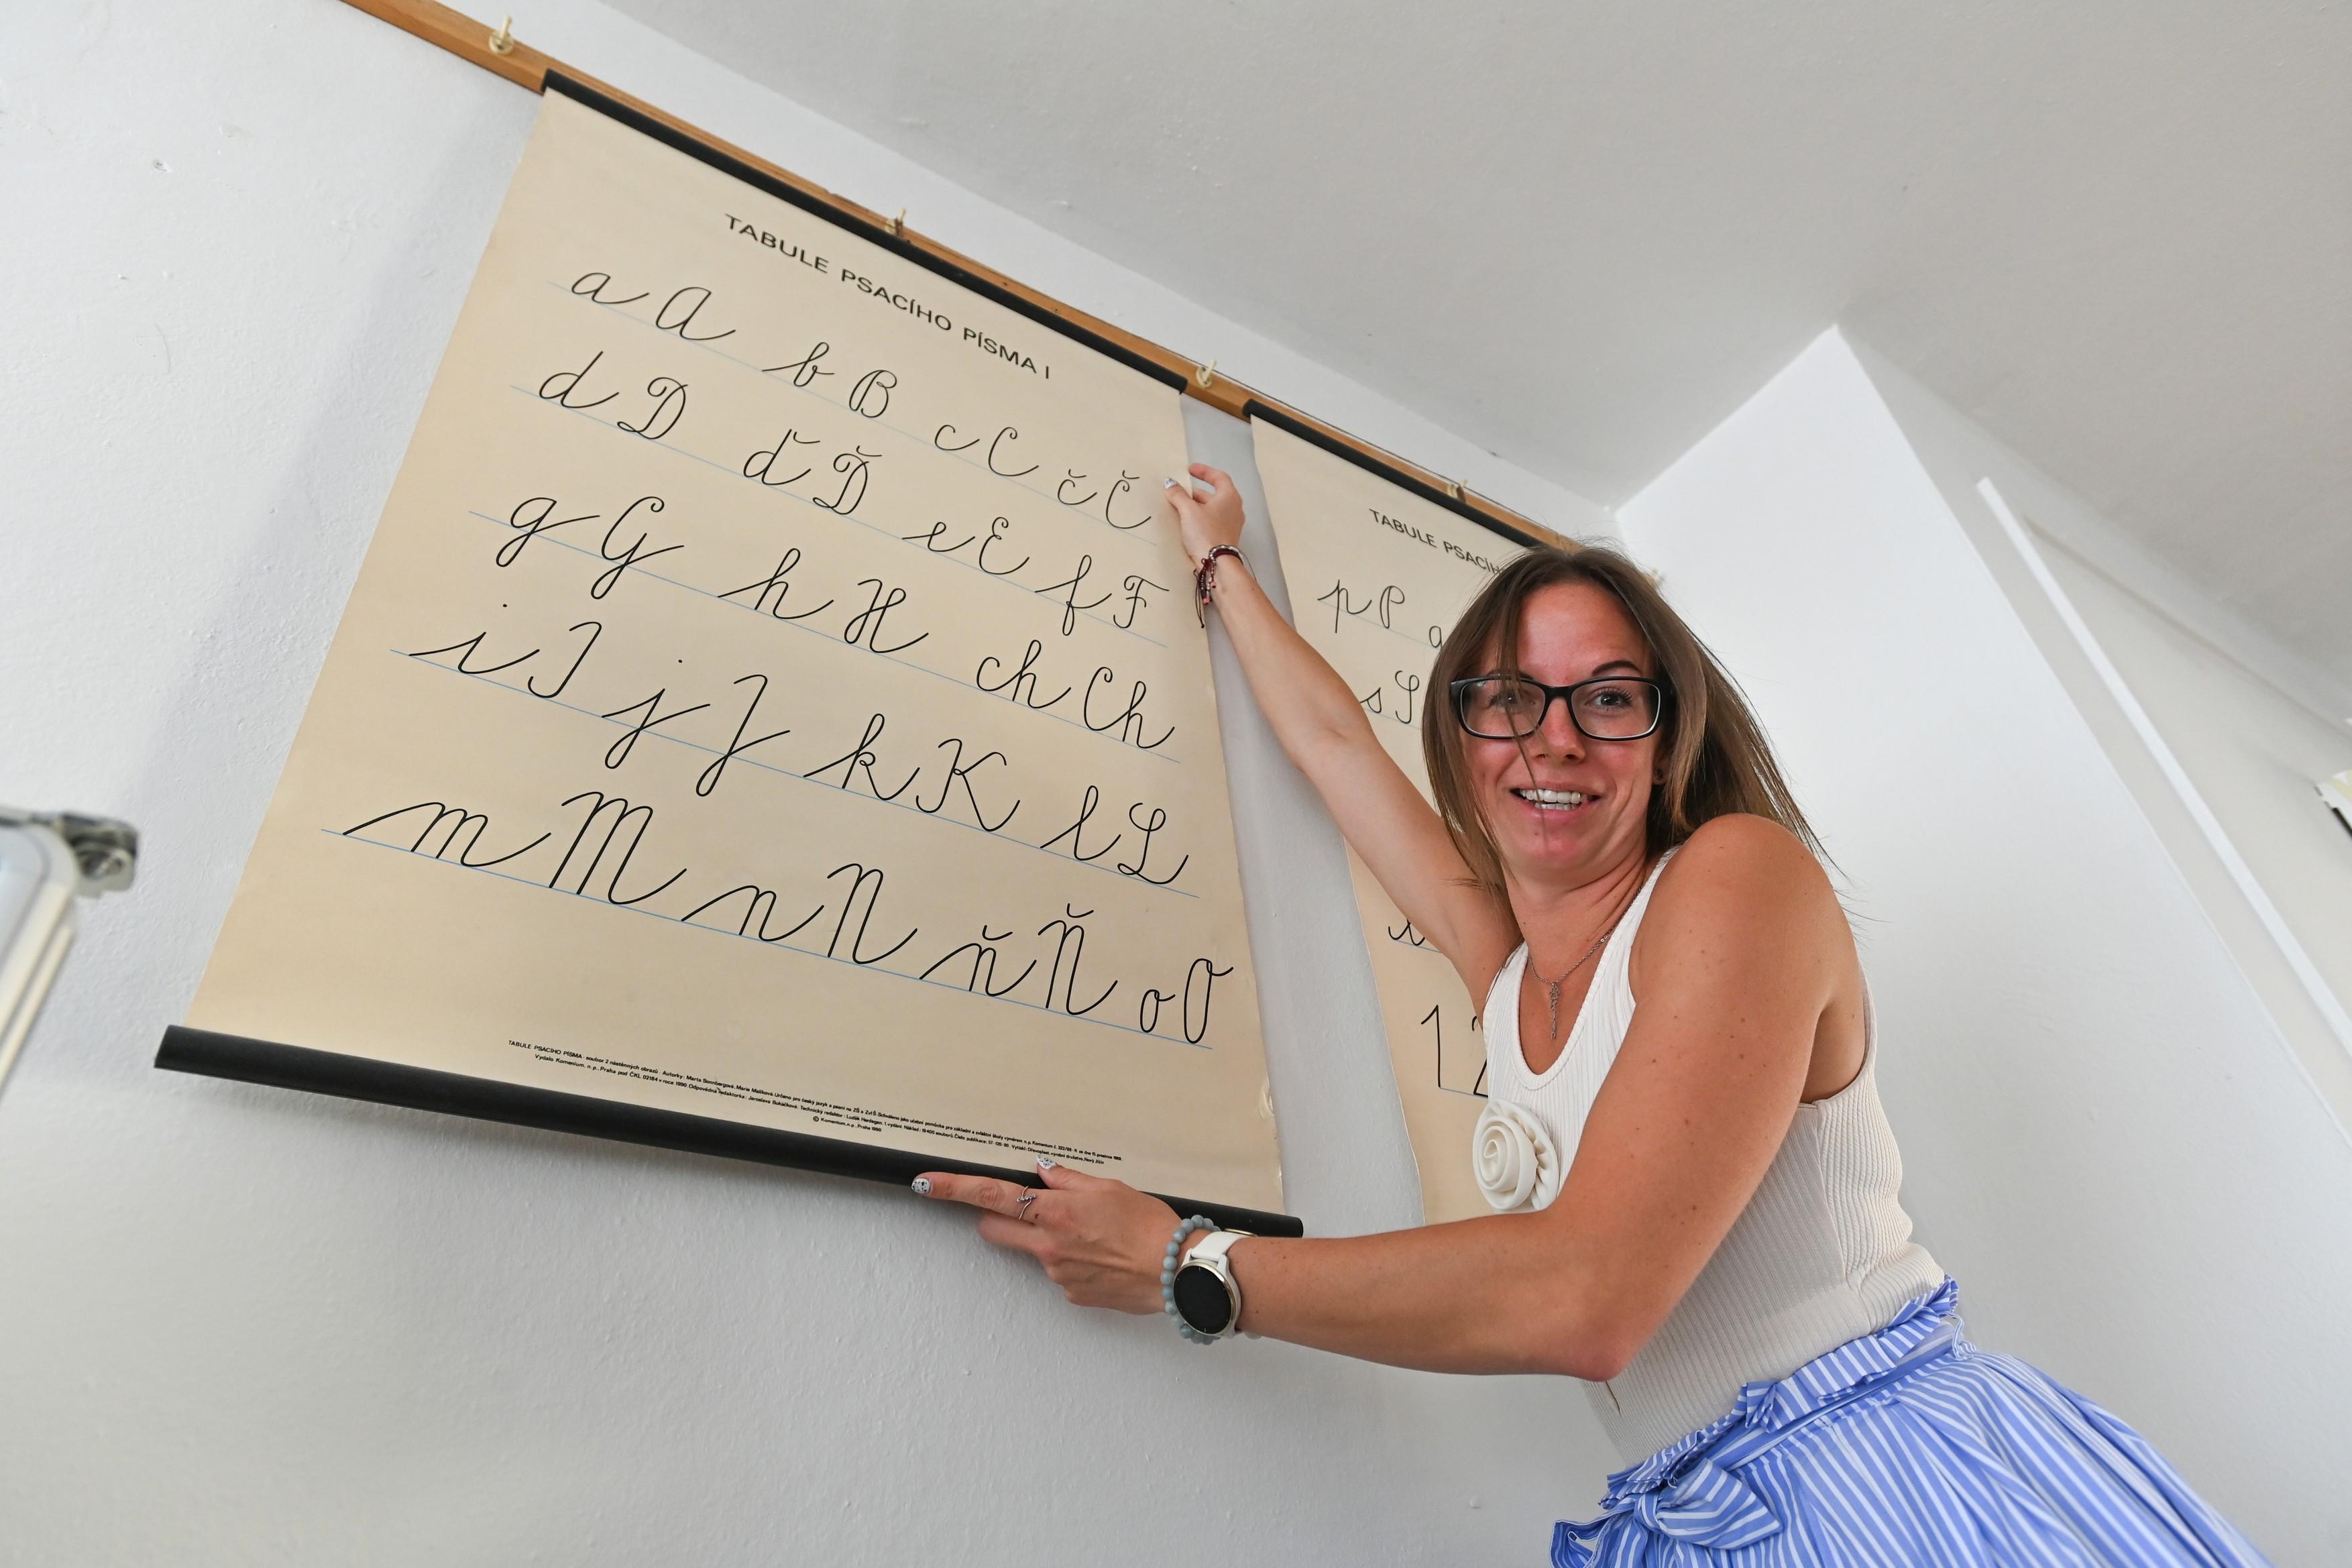 TABULE PSACÍHO PÍSMA I
a A b B c C č Č
d D ď Ď e E f F
g G h H ch Ch
i I j J k K l L
m M n N ň Ň o O
TABULE PSACÍHO PÍSMA - soubor 2 nástěnných obrazů - Autorky: Marta
Vydalo Komenium, n. p., Praha pod ČKL 02184 v roce 1990
© Komenium, n. p., Praha 1990
TABULE PSACÍH
p P
s S
1 2